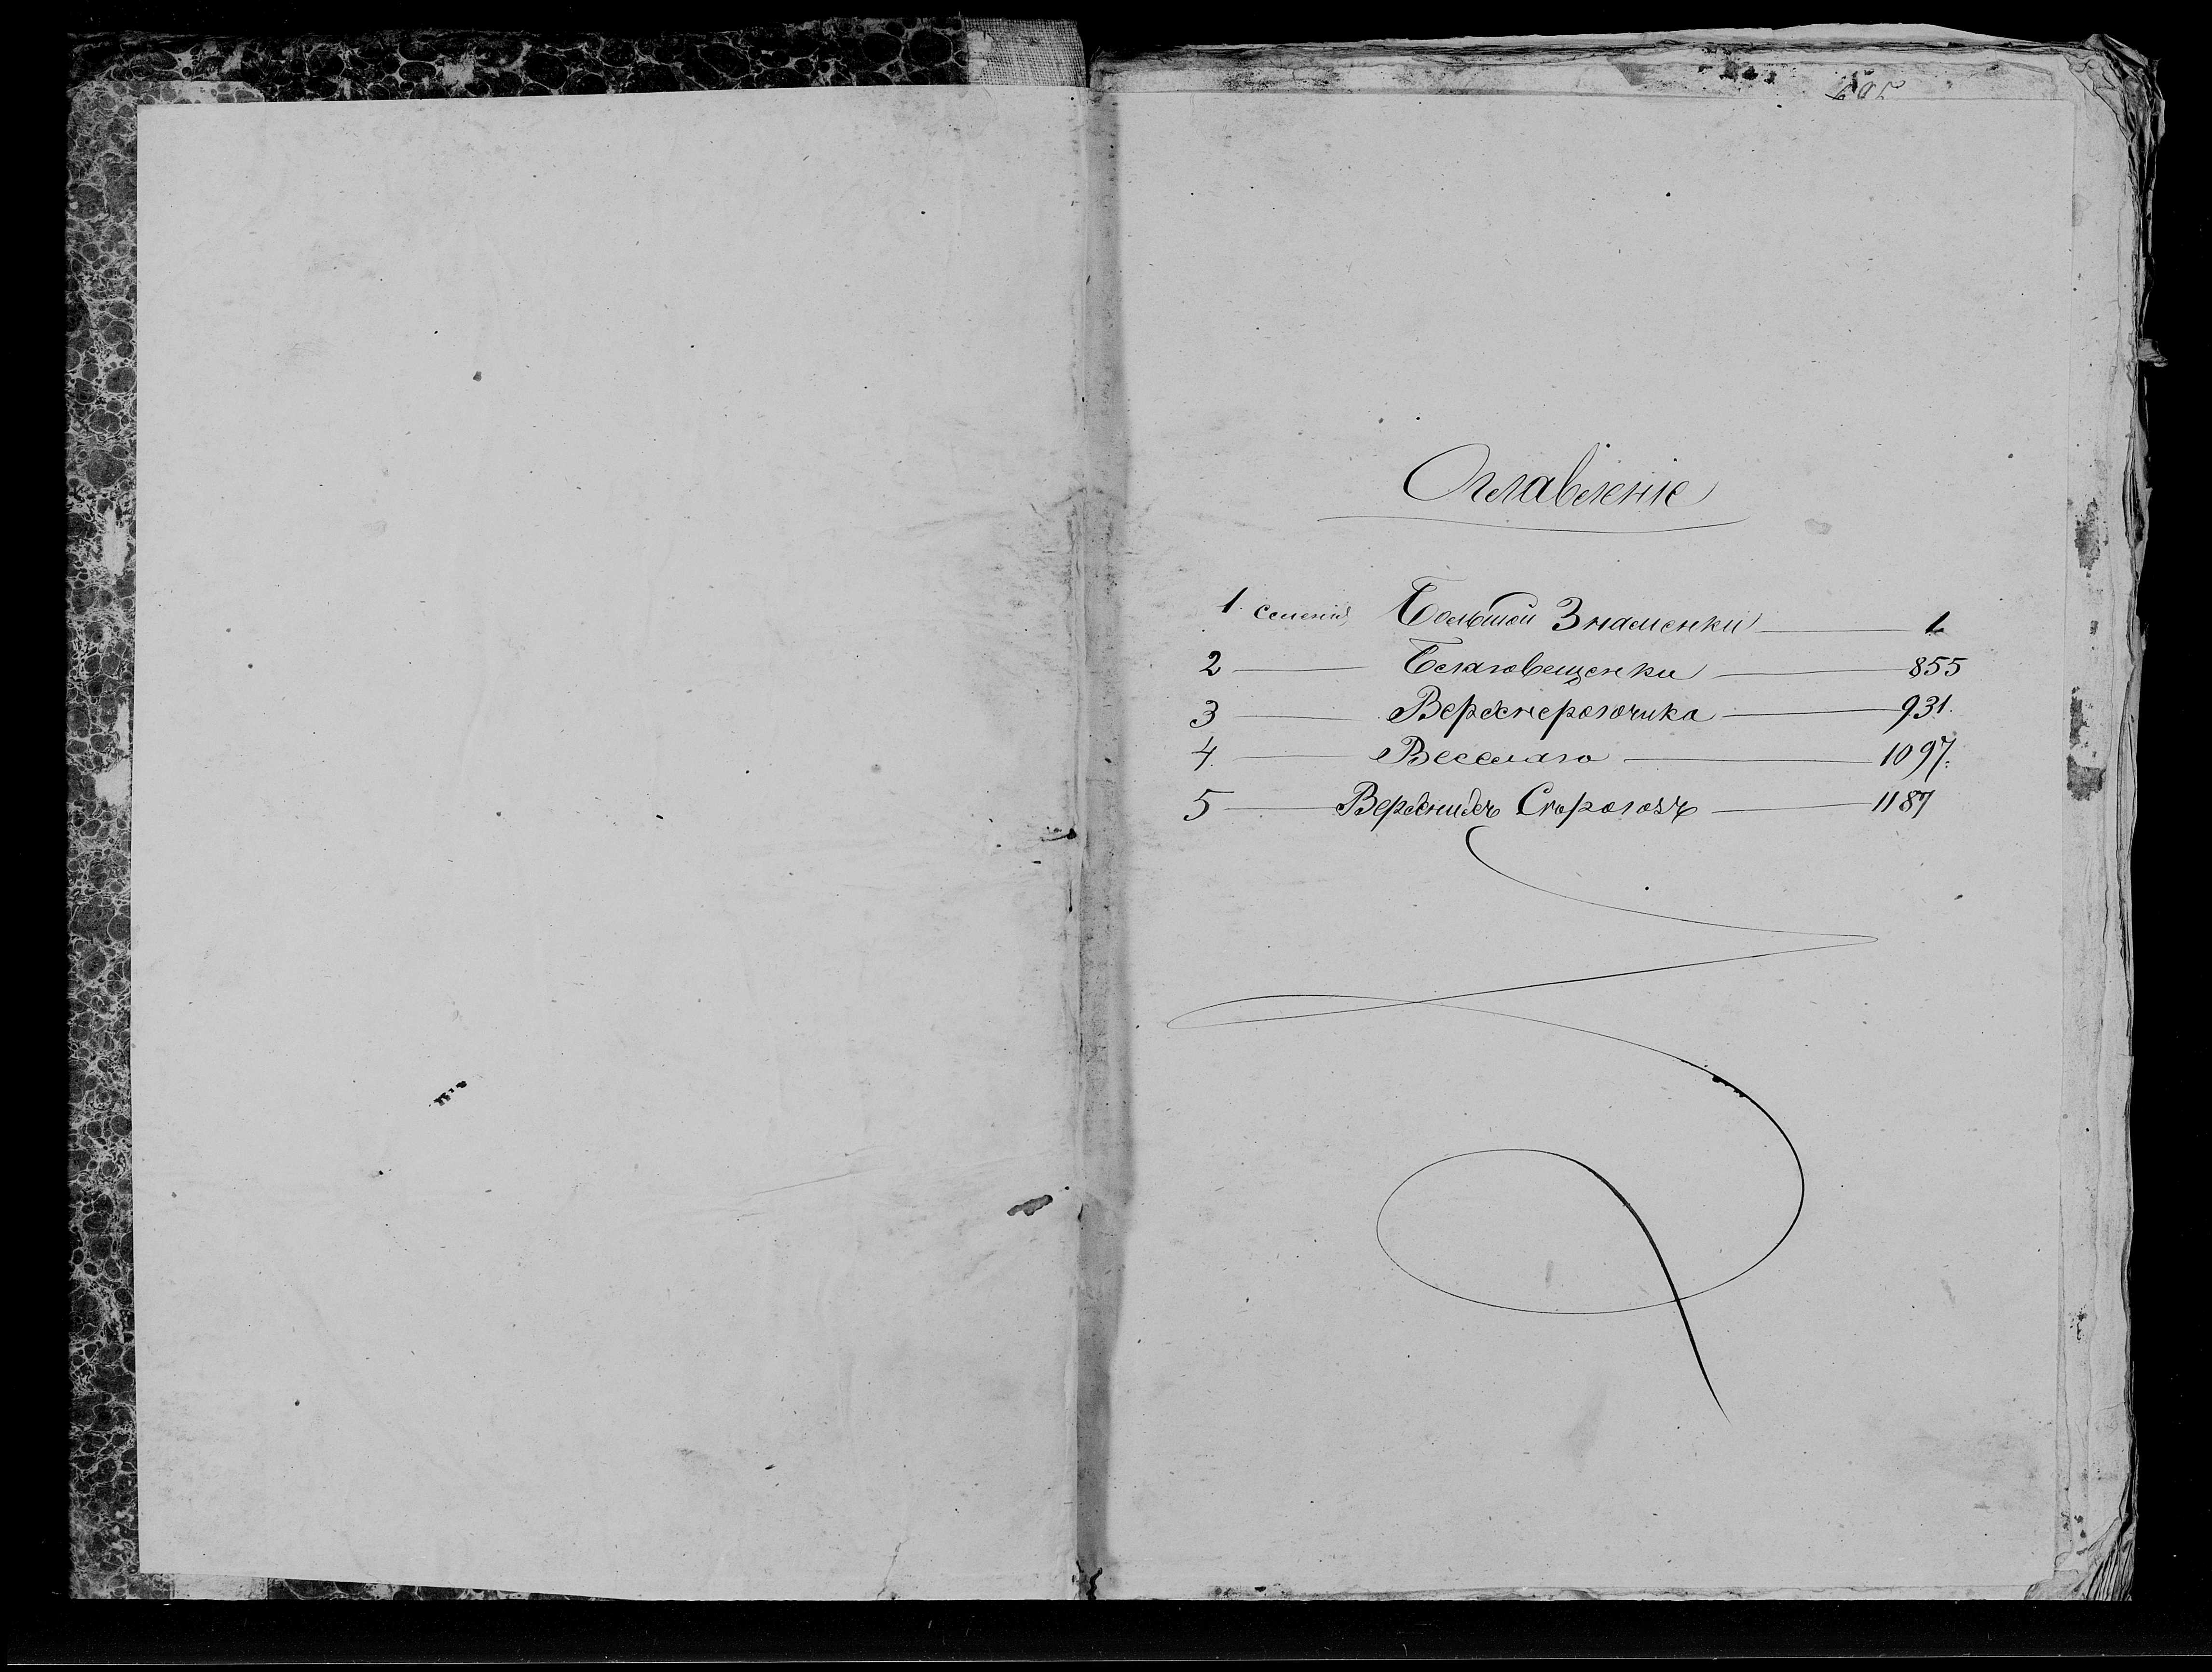 Оглавленіе
1. Селенія Большой Знаменки — 1
2 — Благовещенки — 855
3 — Верхнерогочика — 931.
4. — Веселаго — 1097.
5 — Верхнихъ Сѣрогозъ — 1187